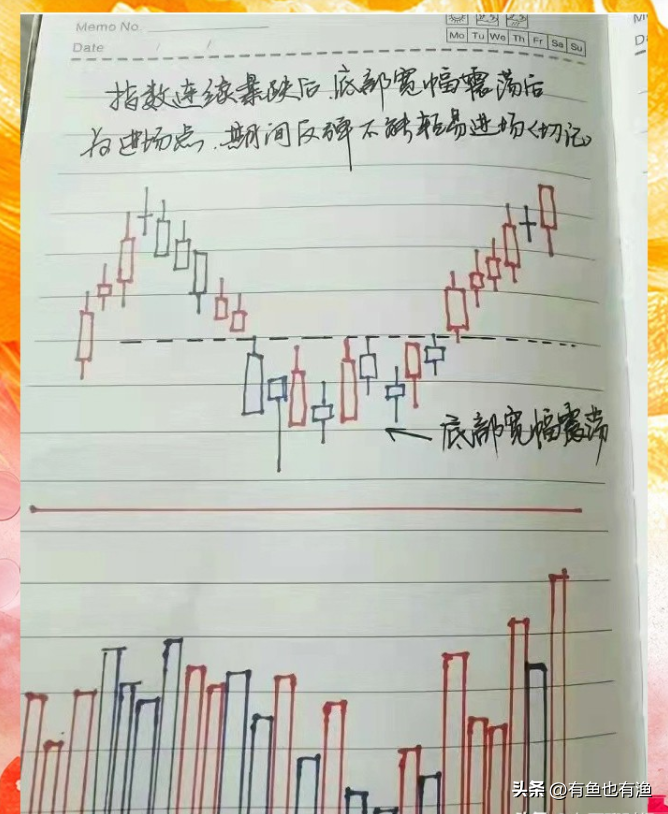 Memo No.
Mo Tu We Th Fr Sa Su
Date / /
指数连续暴跌后.底部宽幅震荡后
为进场点.期间反弹不能轻易进场(切记)
底部宽幅震荡
头条 @有鱼也有渔